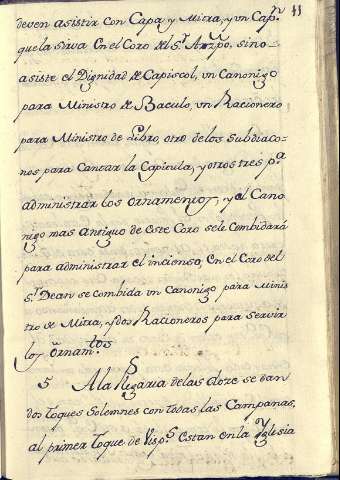 11
deven asistir con Capa y Mitra, y un Cap.n
que la sirva. En el Coro del S.r Arzpo. sino
asiste el Dignidad de Capiscol, un Canonigo
para Ministro de Baculo, un Racionero
para Ministro de Libro, otro de los Subdiaco-
nos para Cantar la Capitula, y otros tres p.a
administrar los ornamentos, y al Cano
nigo mas antiguo de este Coro se le combidará
para administrar el incienso, En el Coro del
S.r Dean se combida un Canonigo para Minis
tro de Mitra, y dos Racioneros para servir
los Ornam.tos
5 A la Plegaria de las doce se dan
dos Toques Solemnes con todas las Campanas,
al primer Toque de Visp.s estan en la Yglesia